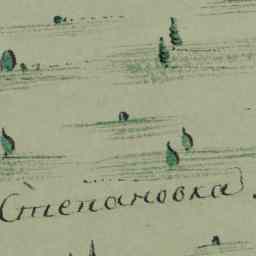 Степановка